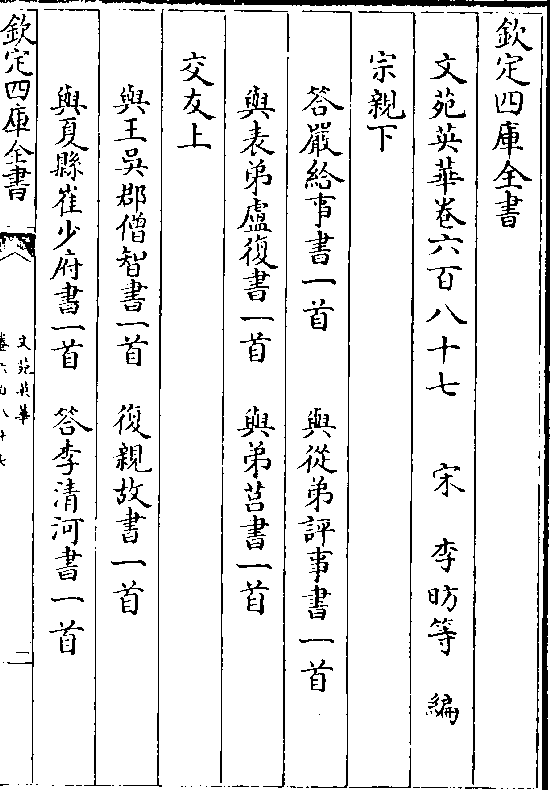 欽定四庫全書
文苑英華卷六百八十七 宋 李昉等 編
宗親下
答嚴給事書一首 與從弟評事書一首
與表弟盧復書一首 與弟莒書一首
交友上
與王吳郡僧智書一首 復親故書一首
與夏縣崔少府書一首 答李清河書一首
欽定四庫全書
文苑英華
卷六百八十七
二